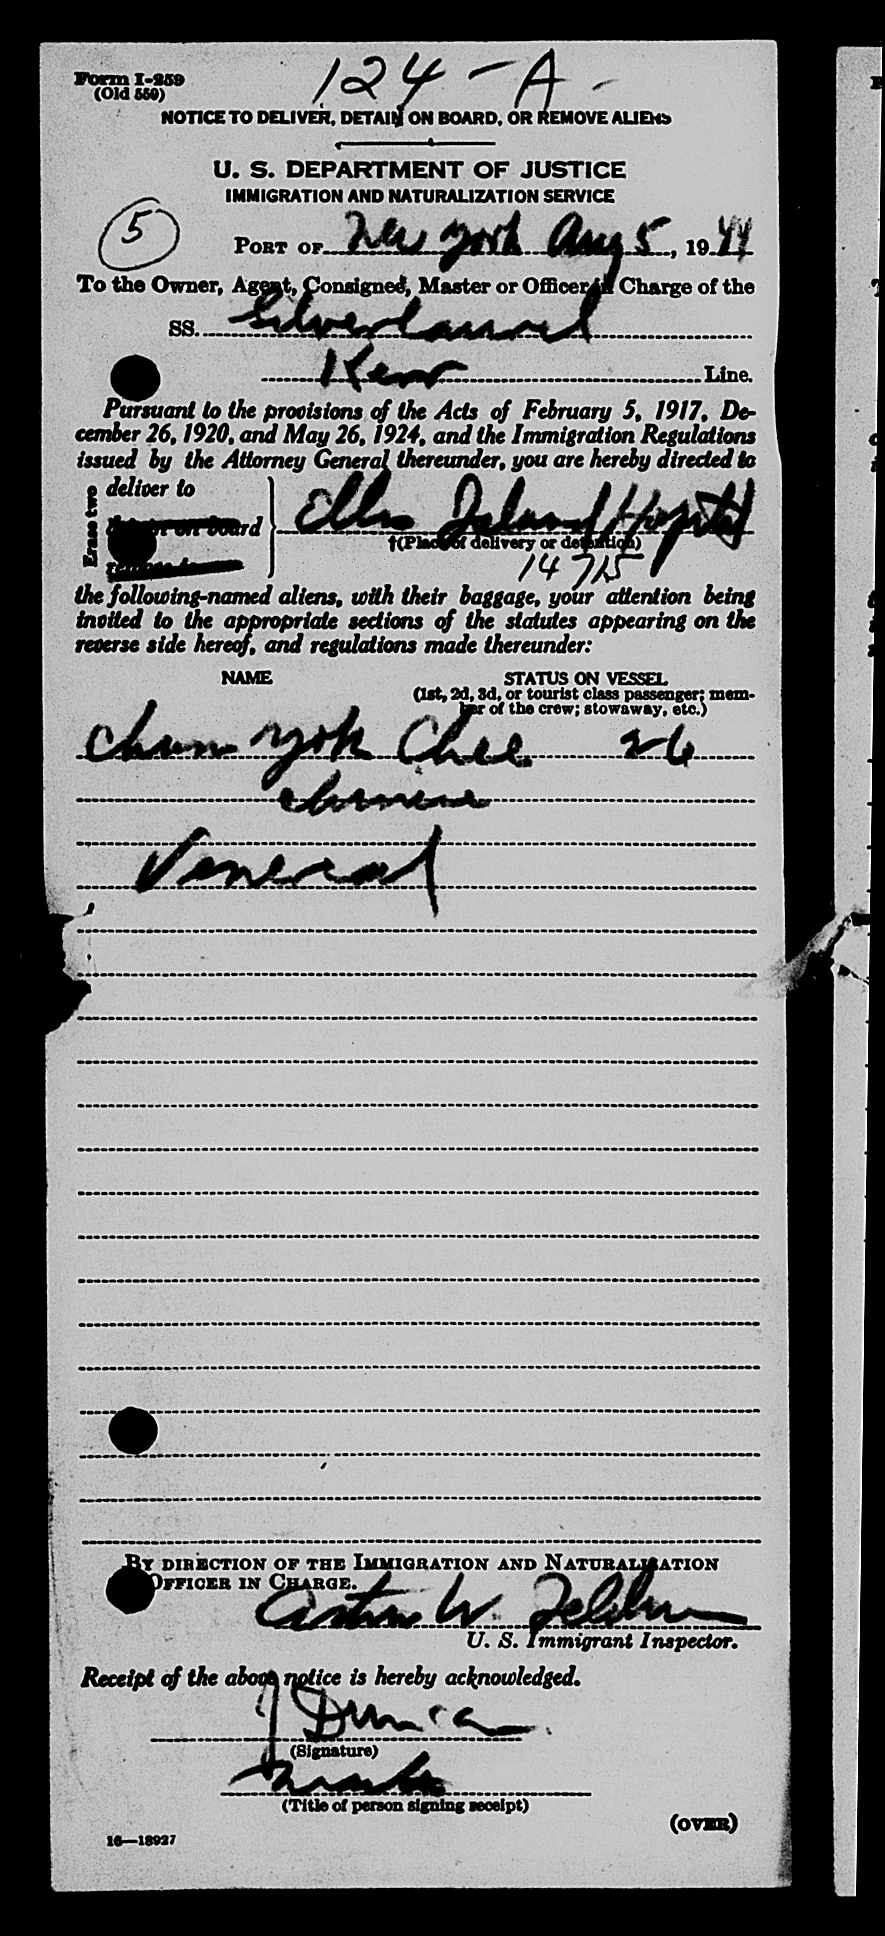 124-A-
Form I-259
(Old 559)
NOTICE TO DELIVER, DETAIN ON BOARD, OR REMOVE ALIENS
U. S. DEPARTMENT OF JUSTICE
IMMIGRATION AND NATURALIZATION SERVICE
5
PORT OF New York Aug 5, 1944
To the Owner, Agent, Consignee, Master or Officer in Charge of the
SS. Silverlaurel
Kerr Line.
Pursuant to the provisions of the Acts of February 5, 1917, De-
cember 26, 1920, and May 26, 1924, and the Immigration Regulations
issued by the Attorney General thereunder, you are hereby directed to
Erase two
deliver to
detain on board
remove to
Ellis Island Hospital
†(Place of delivery or detention)
14715
the following-named aliens, with their baggage, your attention being
invited to the appropriate sections of the statutes appearing on the
reverse side hereof, and regulations made thereunder:
NAME STATUS ON VESSEL
(1st, 2d, 3d, or tourist class passenger; mem-
ber of the crew; stowaway, etc.)
Chun Yok Chee 26
Chinese
Venereal
BY DIRECTION OF THE IMMIGRATION AND NATURALIZATION
OFFICER IN CHARGE.
W.
U. S. Immigrant Inspector.
Receipt of the above notice is hereby acknowledged.
J Duncan
(Signature)
Master
(Title of person signing receipt)
(OVER)
16—18927